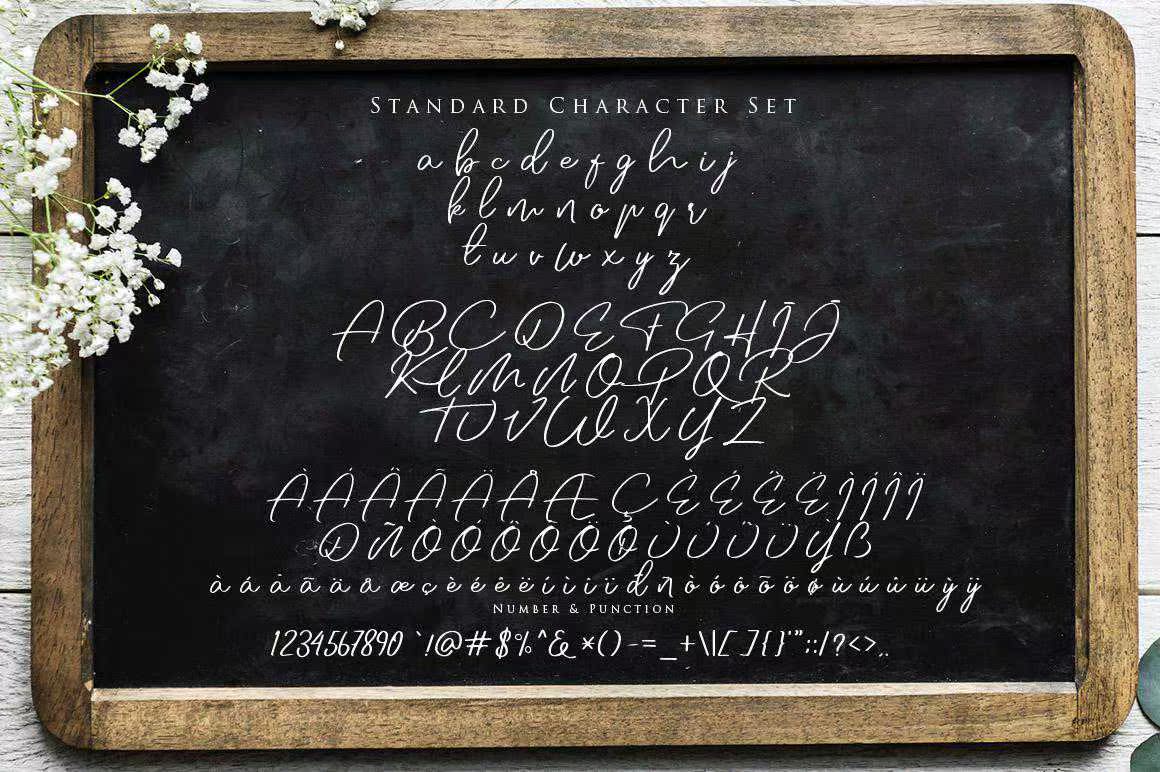 Standard Character Set
a b c d e f g h i j
k l m n o p q r
t u v w x y z
A B C D E F G H I J
K L M N O P Q R
T U V W X Y Z
À Á Â Ã Ä Å Æ Ç È É Ê Ë Ì Í Î Ï
Ð Ñ Ò Ó Ô Õ Ö Ø Ù Ú Û Ü Ý ß
à á â ã ä å æ ç è é ê ë í ì î ï ð ñ ò ó ô õ ö ø ù ú û ü ý ÿ
Number & Punction
1234567890 `!@#$%^&*()-=_+\|[]{}'":;/?<>,.